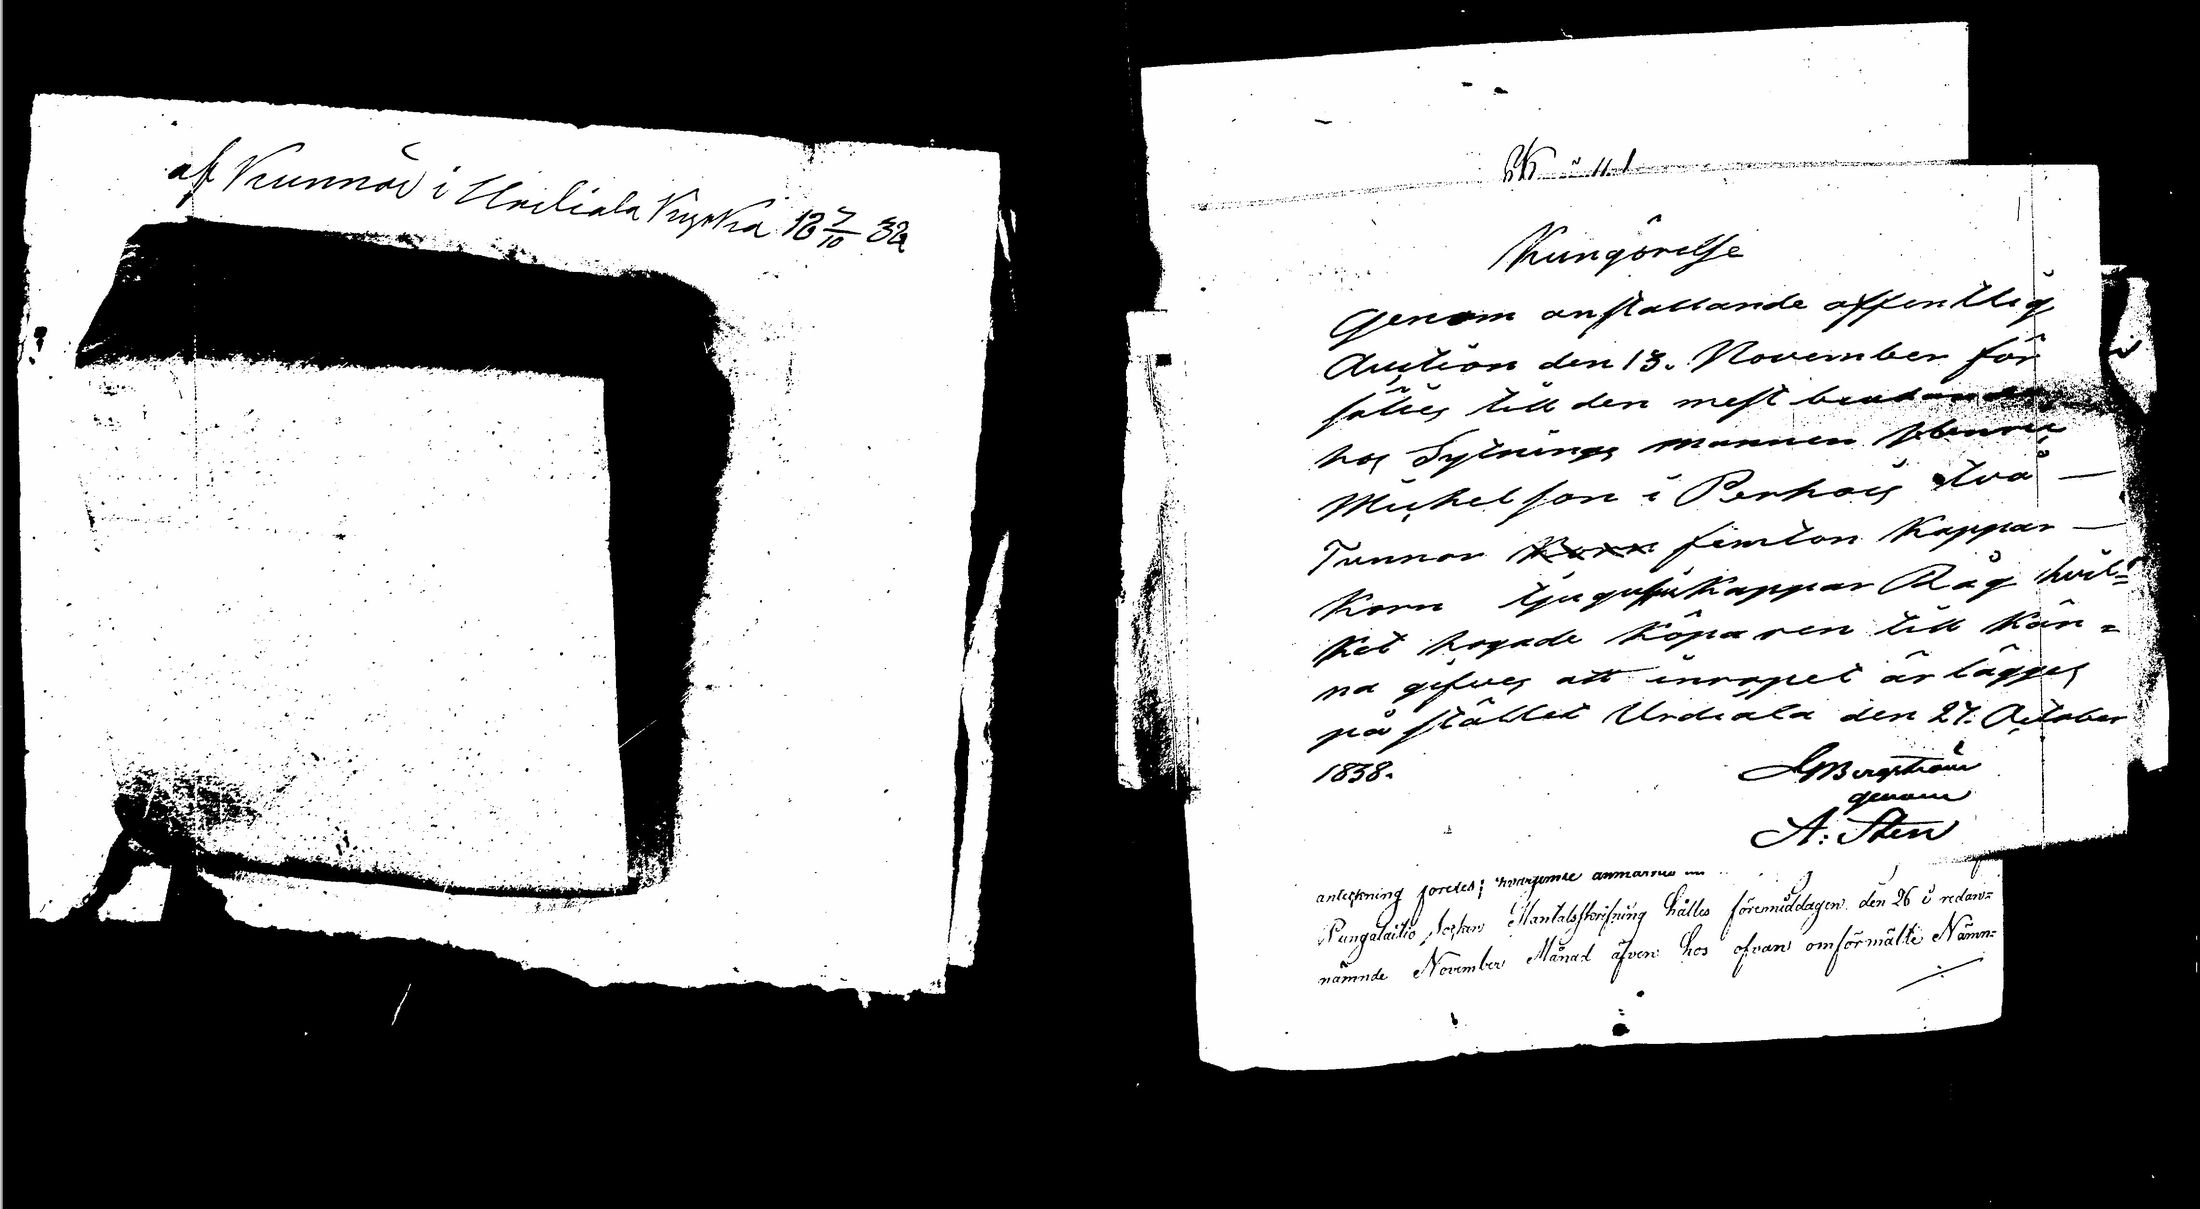 af Kunnad i Urdiala Kyrka 18 7/10 32
Kungörelse
Genom anstallande offentlig
Auction den 13. November för
säljes till den mest biudande
hos Sytnings mannen Henric
Michelson i Perhois två —
Tunnor femton Kappar —
Korn tjugu Kappar Råg hvil=
ket hogade Köparen till Kän=
na gifves att inropet är lägges
på stället Urdiala den 27. October
1838.
Bergström
genom
A: Sten
anteckning foretes;
Pungalaitio Jockan Mantalsskrifning hålles föremiddagen den 26 i redan=
nämnde November Månad äfven hos ofvan omförmälte Nämn=